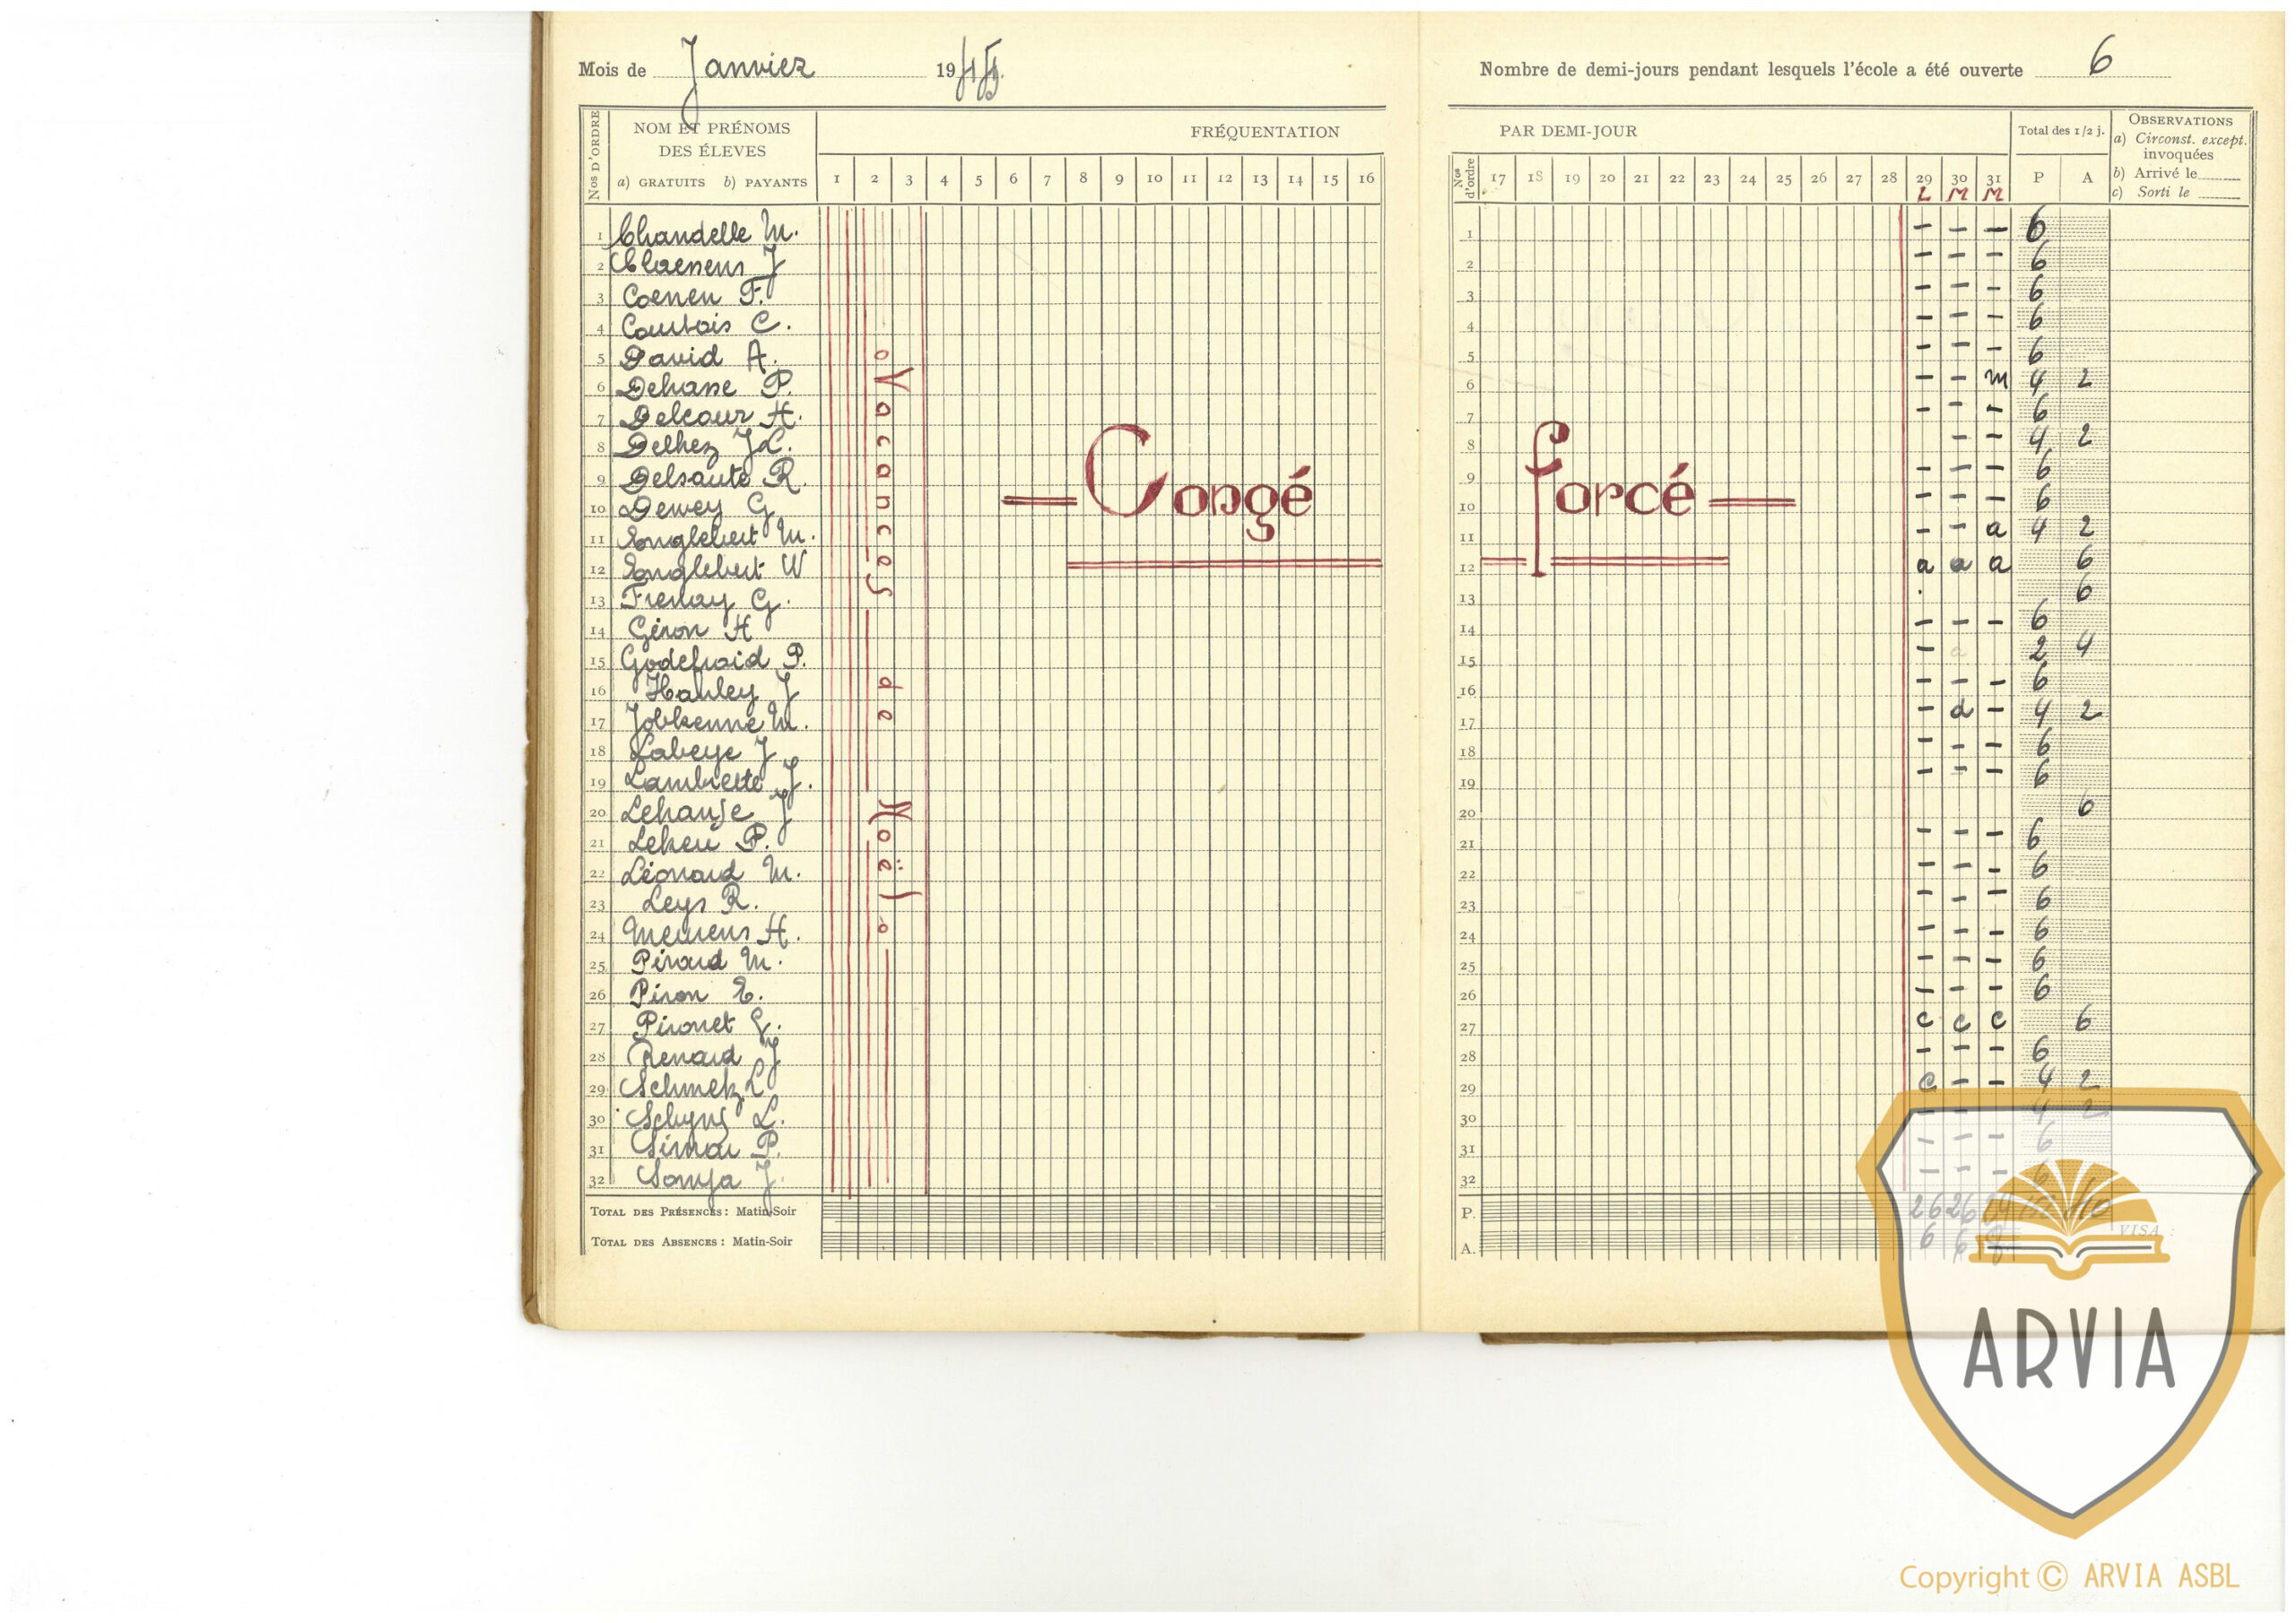 Mois de Janvier 1945. Nombre de demi-jours pendant lesquels l'école a été ouverte 6
Nos D'ORDRE
NOM ET PRÉNOMS
DES ÉLEVES
a) GRATUITS b) PAYANTS
FRÉQUENTATION PAR DEMI-JOUR
Total des 1/2 j.
P A
OBSERVATIONS
a) Circonst. except.
invoquées
b) Arrivé le
c) Sorti le
1 2 3 4 5 6 7 8 9 10 11 12 13 14 15 16
Nos d'ordre 17 18 19 20 21 22 23 24 25 26 27 28 29 30 31
L M M
1 Chandelle M. 1 – – – 6
2 Claesens J 2 – – – 6
3 Coenen F. 3 – – – 6
4 Courtois C. 4 – – – 6
5 David A. 5 – – – 6
6 Dehasse P. 6 – – m 4 2
7 Delcour H. 7 – – – 6
8 Delhez JL. 8 – – 4 2
9 Delsaute R. 9 – – – 6
10 Dewey G 10 – – – 6
11 Englebert M. 11 – – a 4 2
12 Englebert W 12 a a a 6
13 Frenay G. 13 . 6
14 Géron H 14 – – – 6
15 Godefroid P. 15 – a 2 4
16 Hanley J 16 – – – 6
17 Jobkenne M. 17 – d – 4 2
18 Labeye J 18 – – – 6
19 Lambiette J. 19 – – – 6
20 Lehanse J 20 6
21 Lekeu P. 21 – – – 6
22 Léonard M. 22 – – – 6
23 Leys R. 23 – – – 6
24 Meurens H. 24 – – – 6
25 Pirard M. 25 – – – 6
26 Piron E. 26 – – – 6
27 Pironet G. 27 c c c 6
28 Renard J 28 – – – 6
29 Schmetz L 29 c – – 4 2
30 Schyns L. 30 – – 4 2
31 Simar P. 31 – – – 6
32 Sonja J. 32 – – – 6
o Vacances de Noël o
= Congé forcé =
TOTAL DES PRÉSENCES : Matin-Soir P. 26 26 24
TOTAL DES ABSENCES : Matin-Soir A. 6 6 8
VISA :
ARVIA
Copyright © ARVIA ASBL